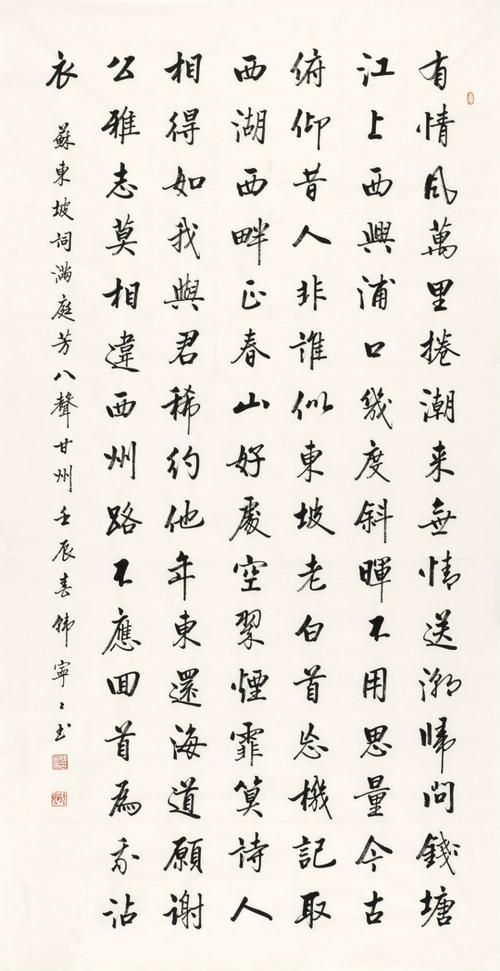 有情風萬里捲潮来無情送潮歸問錢塘
江上西興浦口幾度斜暉不用思量今古
俯仰昔人非誰似東坡老白首忘機記取
西湖西畔正春山好處空翠煙霏算詩人
相得如我與君稀約他年東還海道願謝
公雅志莫相違西州路不應回首為我沾
衣
蘇東坡詞滿庭芳八聲甘州壬辰春韓寧〻书